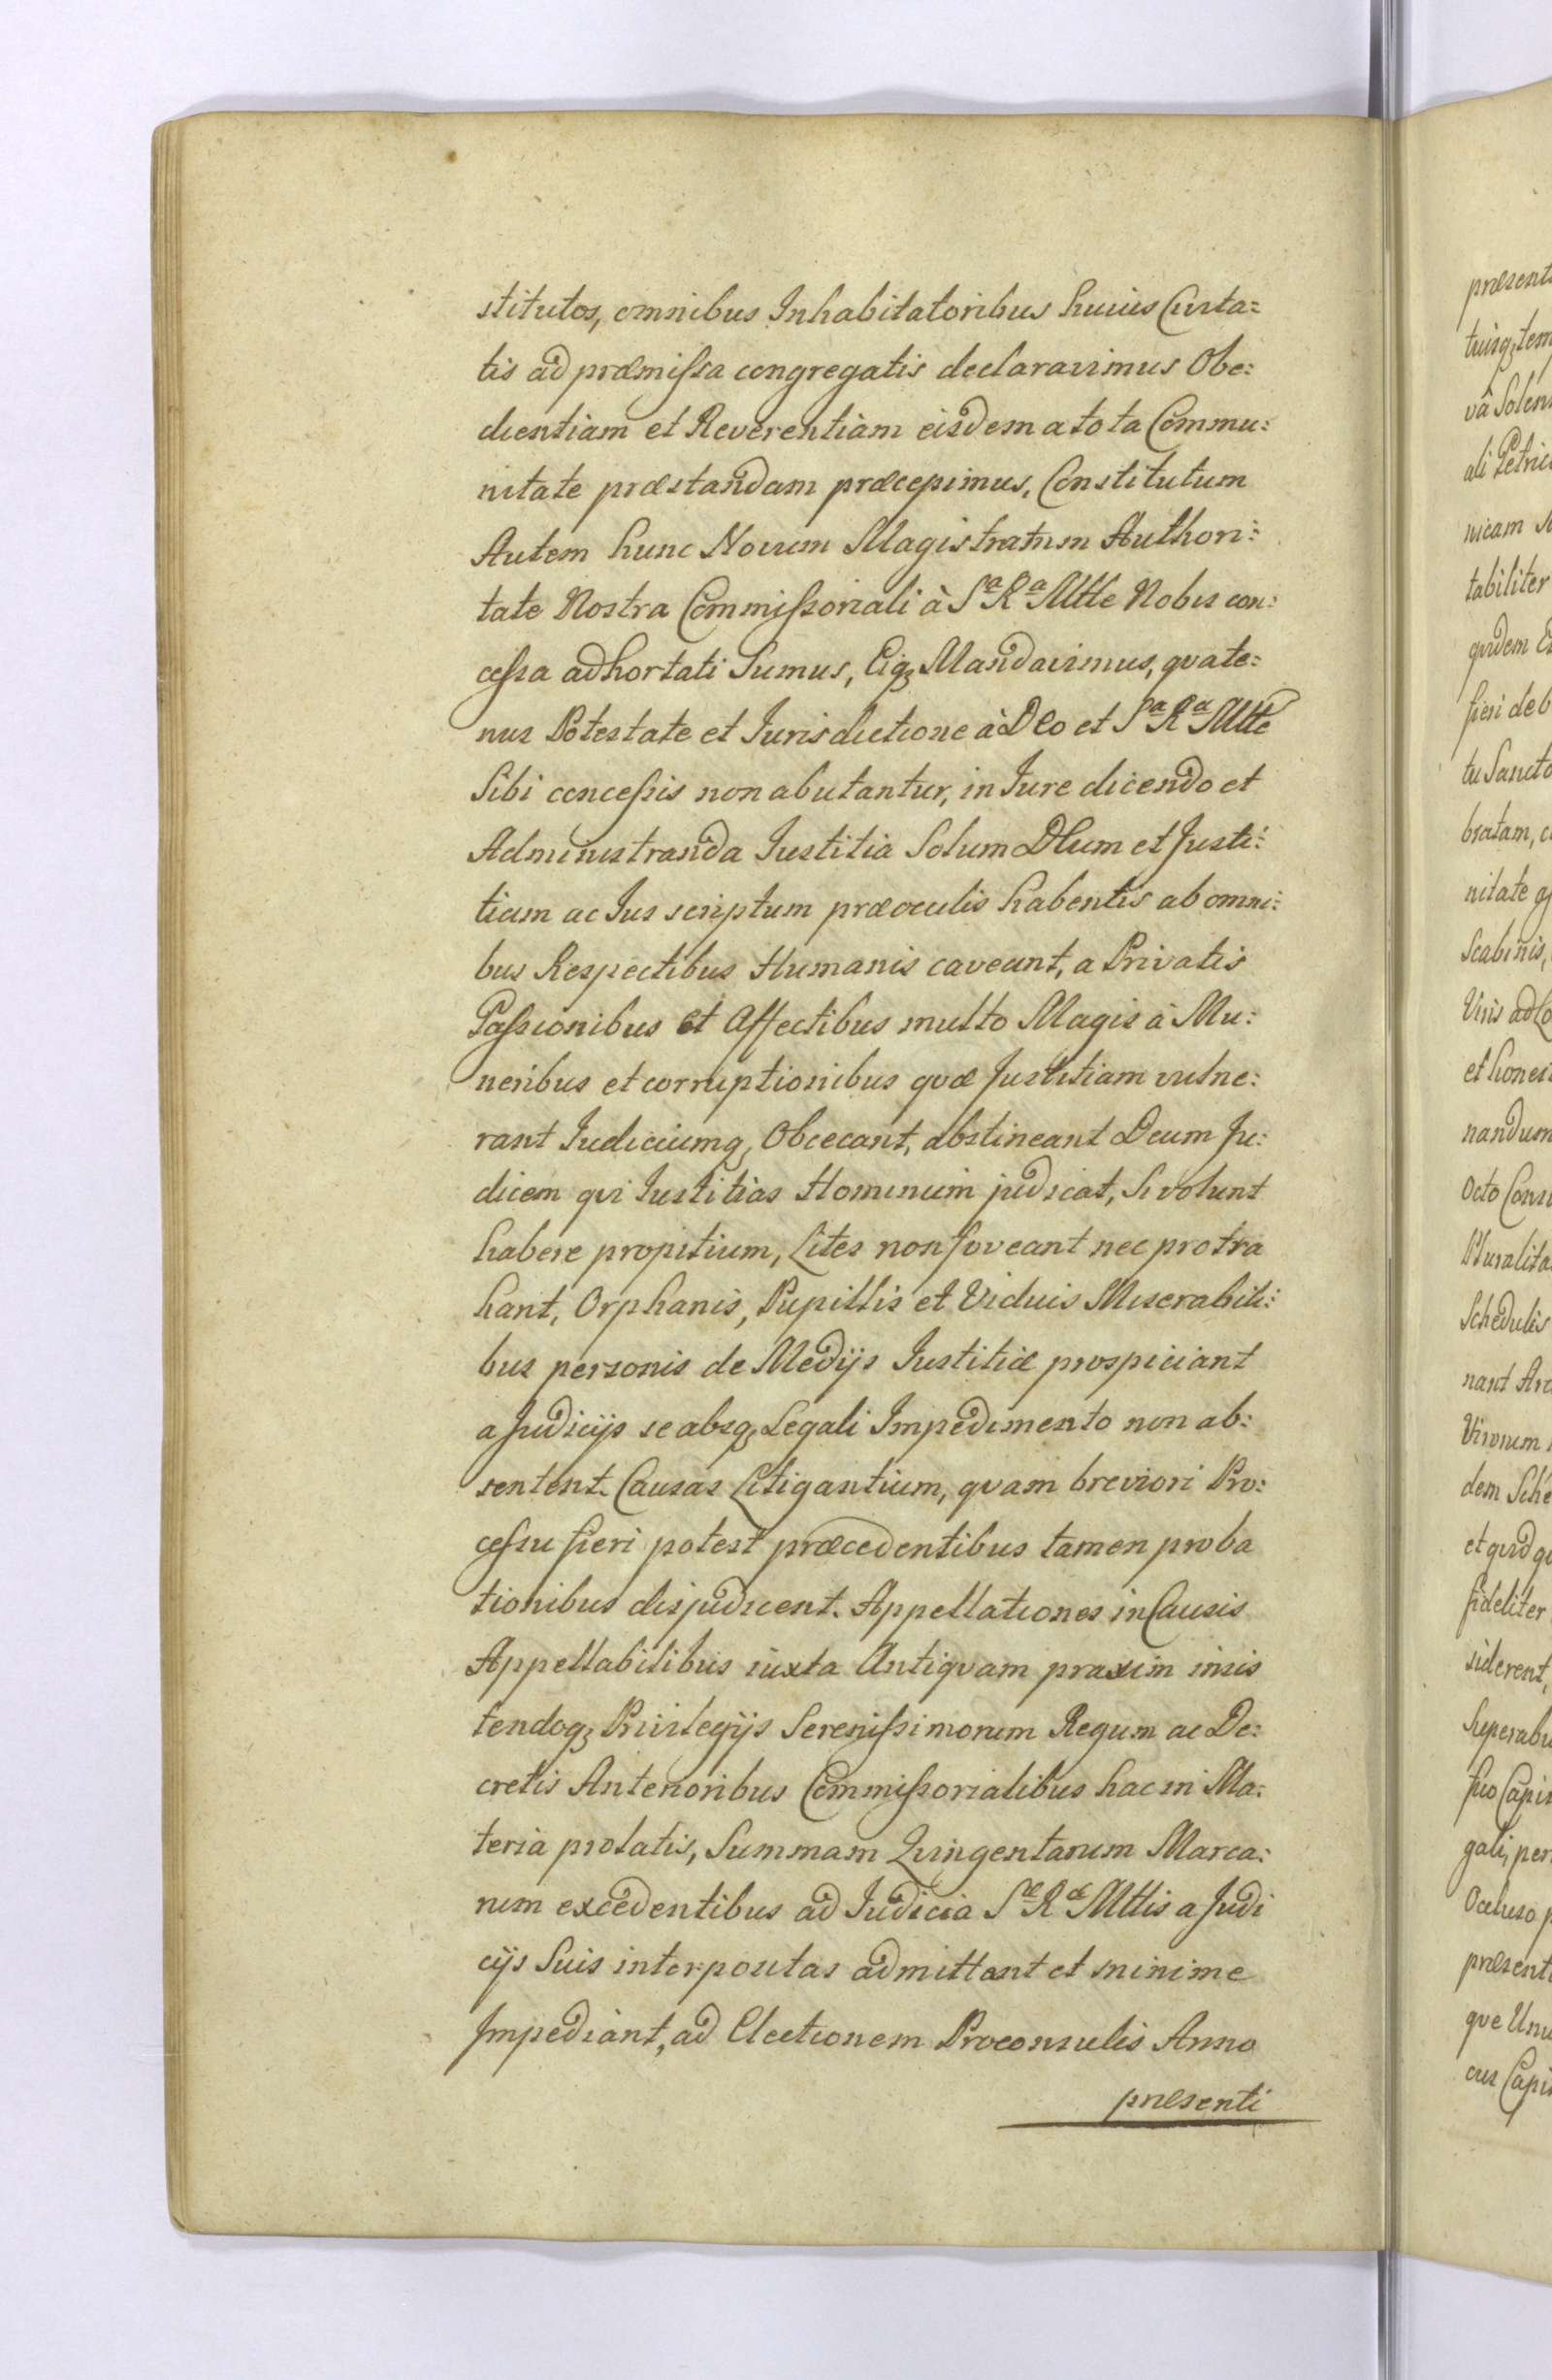 stitutos, omnibus Inhabitatoribus huius Civita=
tis ad præmissa congregatis declaravimus Obe:
dientiam et Reverentiam eisdem a tota Commu:
nitate præstandam præcepimus, Constitutum
Autem hunc Novum Magistratum Authori:
tate Nostra Commissoriali à Sª Rª Mtte Nobis con:
cessa adhortati Sumus, Eiq; Mandavimus, qvate:
nus Potestate et Iurisdictione à Deo et Sª Rª Mtte
Sibi concessis non abutantur, in Iure dicendo et
Administranda Iustitia Solum Deum et Justi:
tiam ac Ius scriptum præ oculis habentes ab omni:
bus Respectibus Humanis caveant, a Privatis
Passionibus et Affectibus multo Magis à Mu:
neribus et corruptionibus qvæ Justitiam vulne:
rant Iudiciumq; Obcecant, abstineant Deum Ju:
dicem qvi Iustitias Hominum judicat, Si volunt
habere propitium, Lites non foveant nec protra
hant, Orphanis, Pupillis et Viduis Miserabili:
bus personis de Medijs Iustitiæ prospiciant
a Judicijs se absq; Legali Impedimento non ab:
sentent. Causas Litigantium, qvam breviori Pro:
cessu fieri potest præcedentibus tamen proba
tionibus disjudicent. Appellationes in Causis
Appellabilibus iuxta Antiqvam praxim insis
tendoq; Privilegijs Serenissimorum Regum ac De:
cretis Anterioribus Commissorialibus hac in Ma:
teria prolatis, Summam Qvingentarum Marca:
rum excedentibus ad Iudicia Sæ Ræ Mttis a Judi
cijs Suis interpositas admittant et minime
Impediant, ad Electionem Proconsulis Anno
præsenti
præsenti
tuisq; tem
vâ Solen
ali Petric
nicam
tabiliter
qvidem
fieri deb
tu Sancto
bratam, c
nitate
Scabinis,
Viris ad Lo
et hones
nandum
Octo Cons
Pluralita
Schedulis
nant Arc
Virorum
dem Sche
et qvid
fideliter
siderent,
Superabu
suo Capi
gali, per
Occluso p
præsent
qve Unu
cus Capi